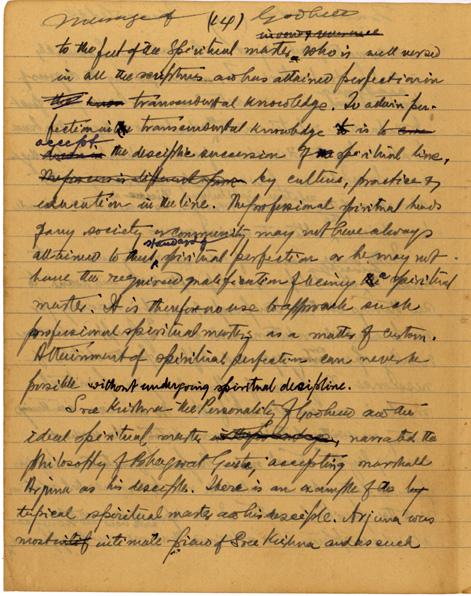 Message of (14) Godhead
to the feet of the Spiritual master, who is well versed
in all the scriptures and has attained perfection in
transcendental knowledge. To attain per-
fection in transcendental knowledge is to
accept the desciplic succession of spiritual line,
by culture, practice &
education in the line. The professional spiritual heads
of any society or community may not have always
attained to the standard of spiritual perfection or he may not
have the required qualification of being a spiritual
master. It is therefore no use to approach such
professional spiritual master as a matter of custom.
Attainment of spiritual perfection can never be
possible without undergoing spiritual descipline.
Sree Krishna the Personality of Godhead and the
ideal spiritual master narrated the
philosophy of Bhagwat Geeta accepting marshall
Arjuna as his desciple. There is an example of the
typical spiritual master and his desciple. Arjuna was
most intimate friend of Sree Krishna and as such